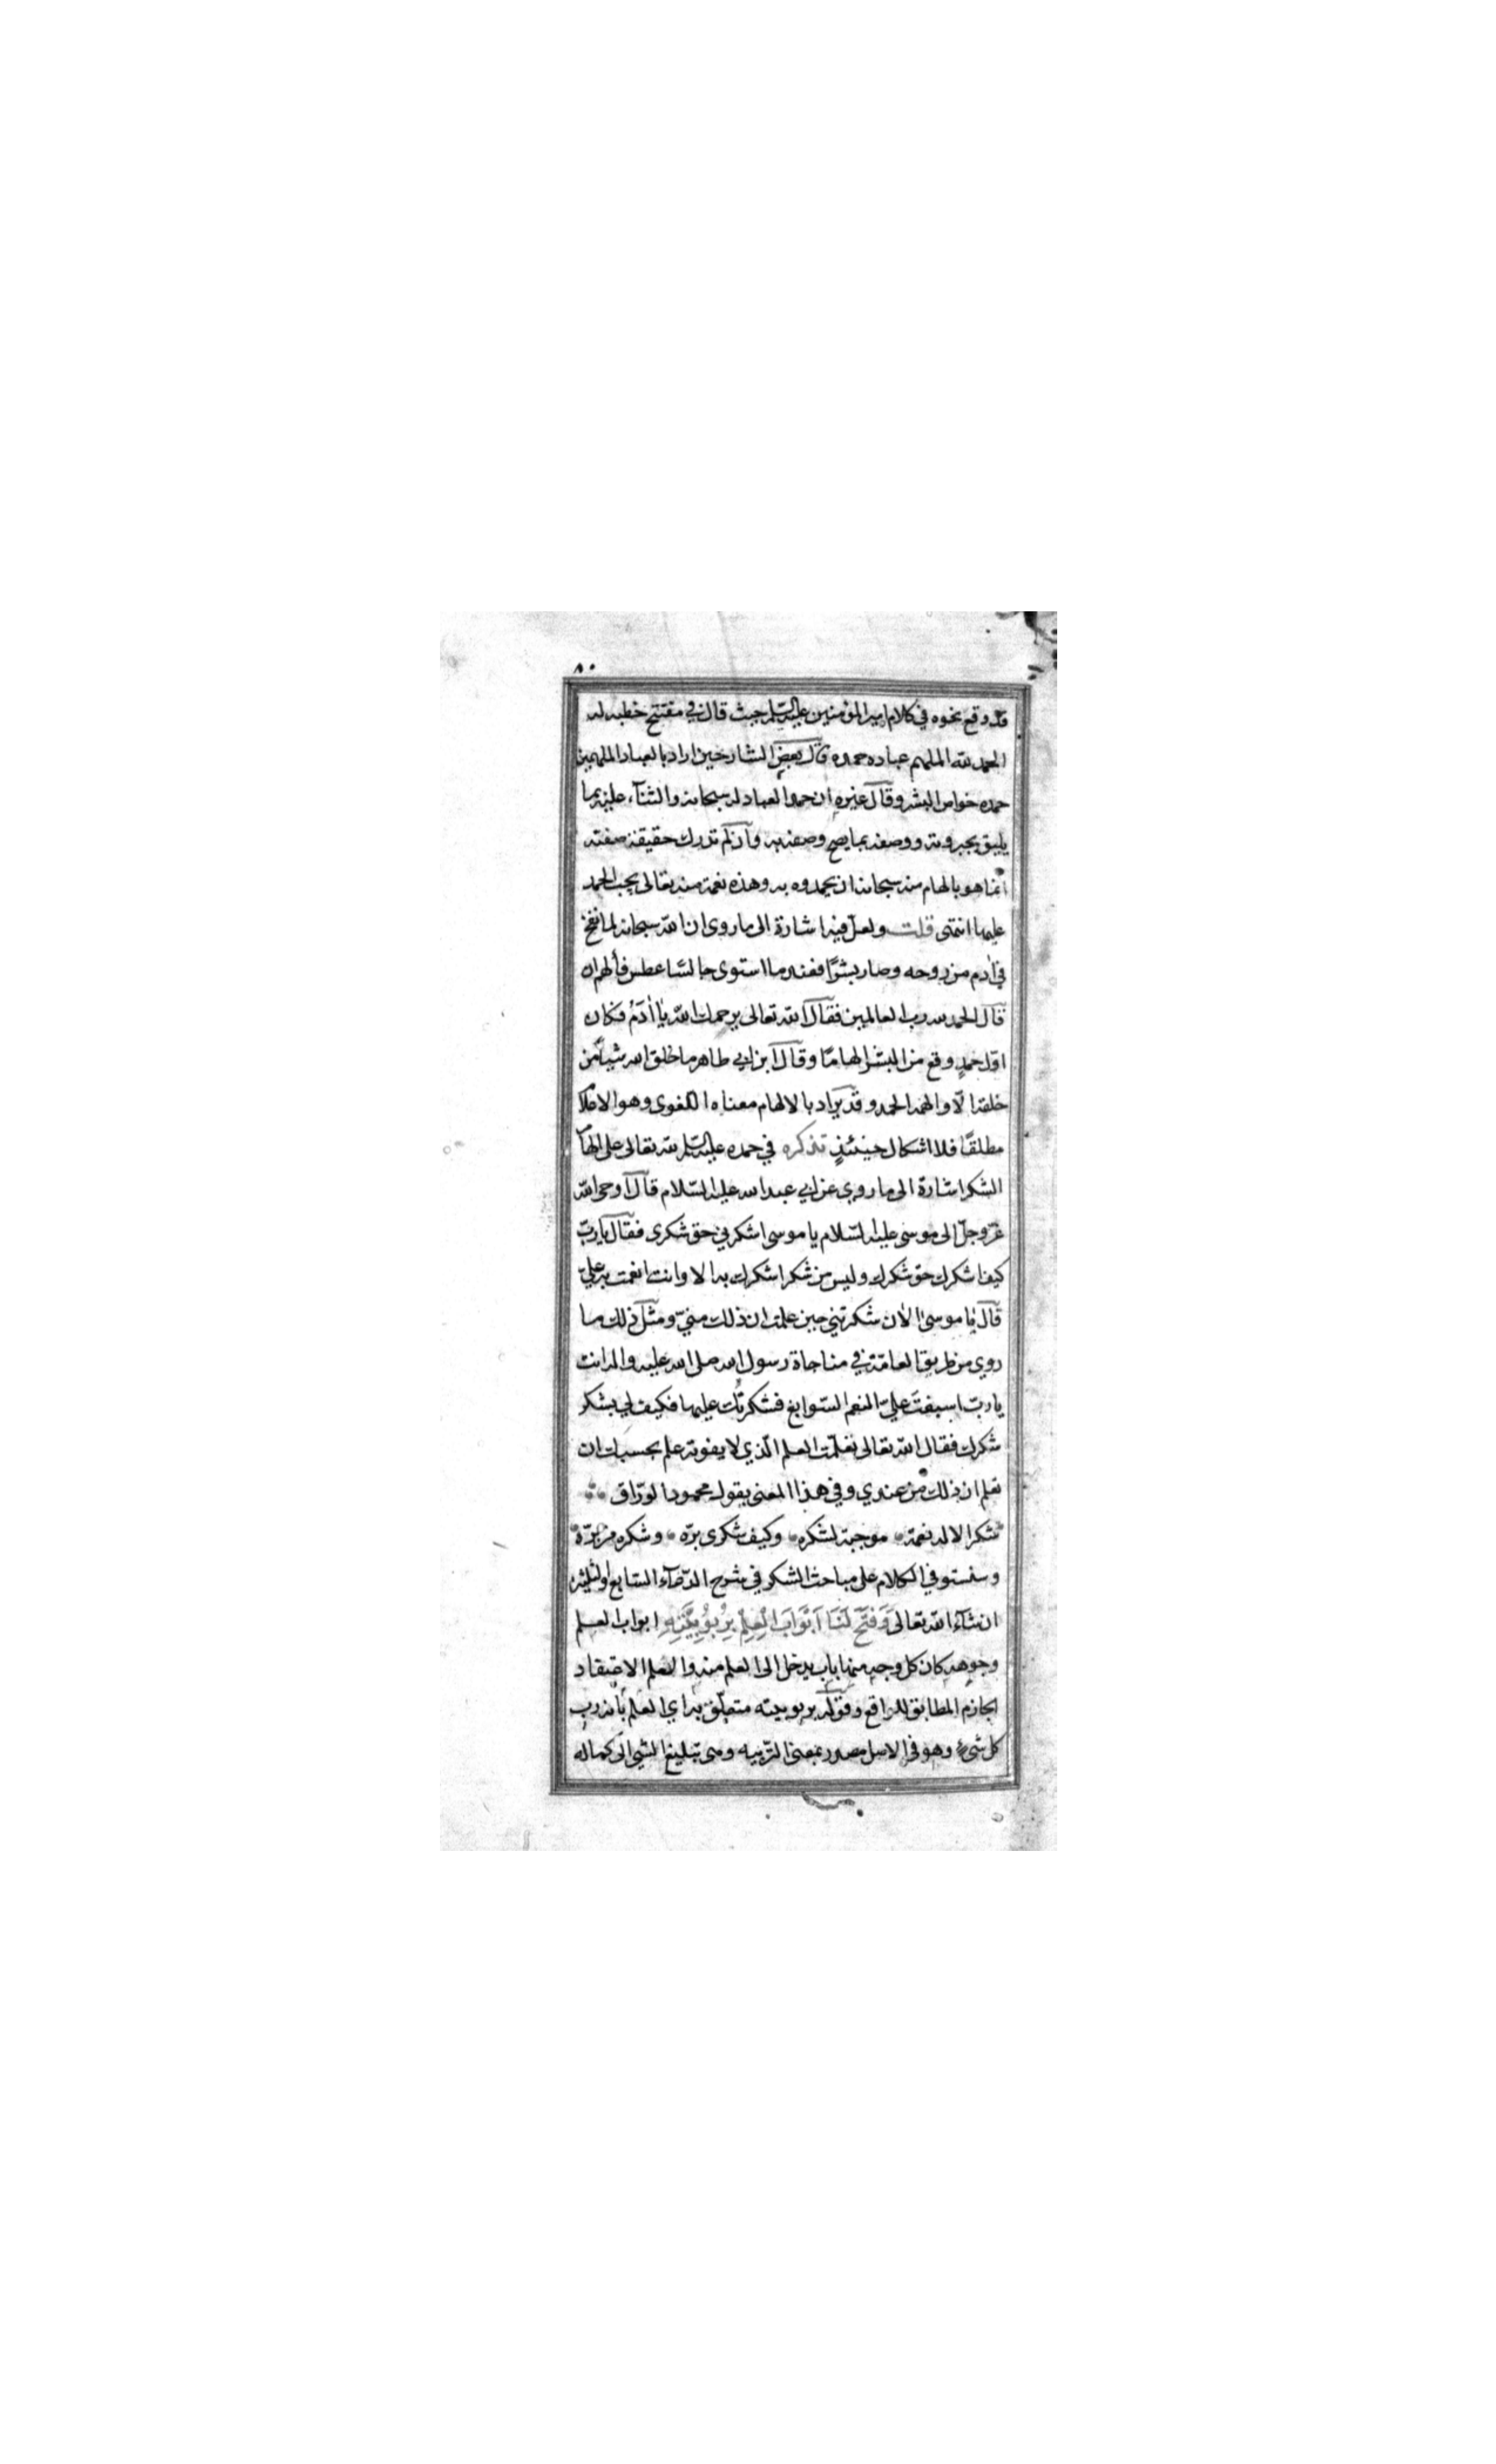 ٨٠
قد وقع نحوه في كلام امير المؤمنين عليه السلم حيث قال في مفتتح خطبه له
الحمد لله الملهم عباده حمده قال بعض الشارحين اراد بالعباد الملهمين
حمده خواص البشر وقال غيره ان حمد العباد له سبحانه والثناء عليه بما
يليق بجبروته ووصفه بما يصح وصفه به وان لم تدرك حقيقة صفته
انما هو بالهام منه سبحانه ان يحمدوه به وهذه نعمة منه تعالى يجب الحمد
عليها انتهى قلت ولعل فيه اشارة الى ما روى ان الله سبحانه لما نفخ
في ادم من روحه وصار بشرًا فعند ما استوى جالسًا عطس فألهم ان
قال الحمد لله رب العالمين فقال الله تعالى يرحمك الله يا ادم فكان
اول حمدٍ وقع من البشر الهامًا وقال ابن ابي طاهر ما خلق الله شيأ من
خلقه الا والهمه الحمد وقد يراد بالالهام معناه اللغوى وهو الاعلام
مطلقًا فلا اشكال حينئذٍ تذكره في حمده عليه السلم لله تعالى على الهام
الشكر اشارة الى ما روي عن ابي عبد الله عليه السلام قال اوحى الله
عز وجل الى موسى عليه السلام يا موسى اشكرني حق شكرى فقال يا رب
كيف اشكرك حق شكرك وليس من شكر اشكرك به الا وانت انعمت به علي
قال يا موسى الان شكرتني حين علمت ان ذلك مني ومثل ذلك ما
روي من طريق العامة في مناجاة رسول الله صلى الله عليه واله انت
يا رب اسبغت علي النعم السوابغ فشكرتك عليها فكيف لي بشكر
شكرك فقال الله تعالى تعلمت العلم الذي لا يفوته علم بحسبك ان
تعلم ان ذلك من عندي وفي هذا المعنى يقول محمود الوراق
شكر الاله نعمة موجبة لشكره وكيف شكرى بره وشكره من بره
وسنستوفي الكلام على مباحث الشكر في شرح الدعاء السابع والثلثين
ان شاء الله تعالى وَفَتَحَ لَنَا اَبْوَابَ الْعِلْمِ بِرُبُوبِيَّتِهِ ابواب العلم
وجوهه كان كل وجه منها باب يدخل الى العلم منه والعلم الاعتقاد
الجازم المطابق للواقع وقوله بربوبيته متعلق به اي العلم بأنه رب
كل شيء وهو في الاصل مصدر بمعنى التربيه وهى تبليغ الشي الى كماله